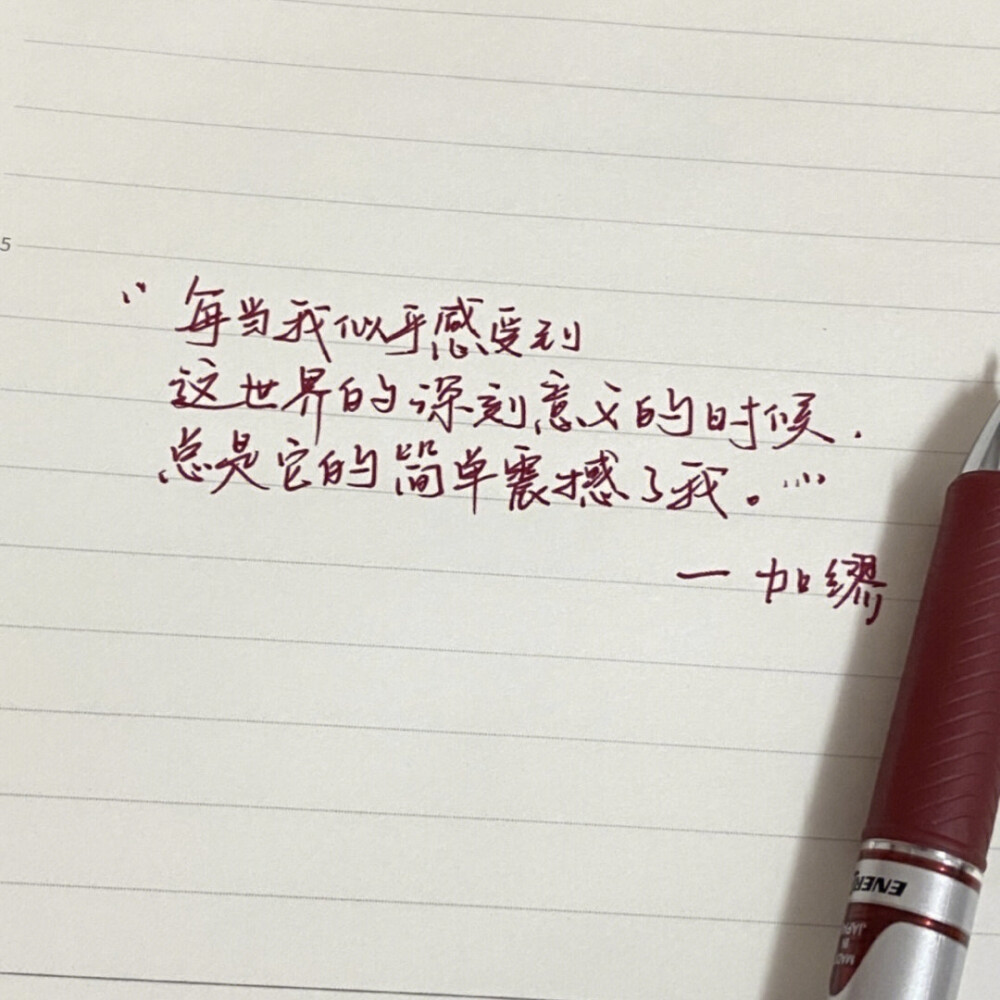 5
“每当我似乎感受到
这世界的深刻意义的时候.
总是它的简单震撼了我。…”
一加缪
ENER
MADE IN JAPAN